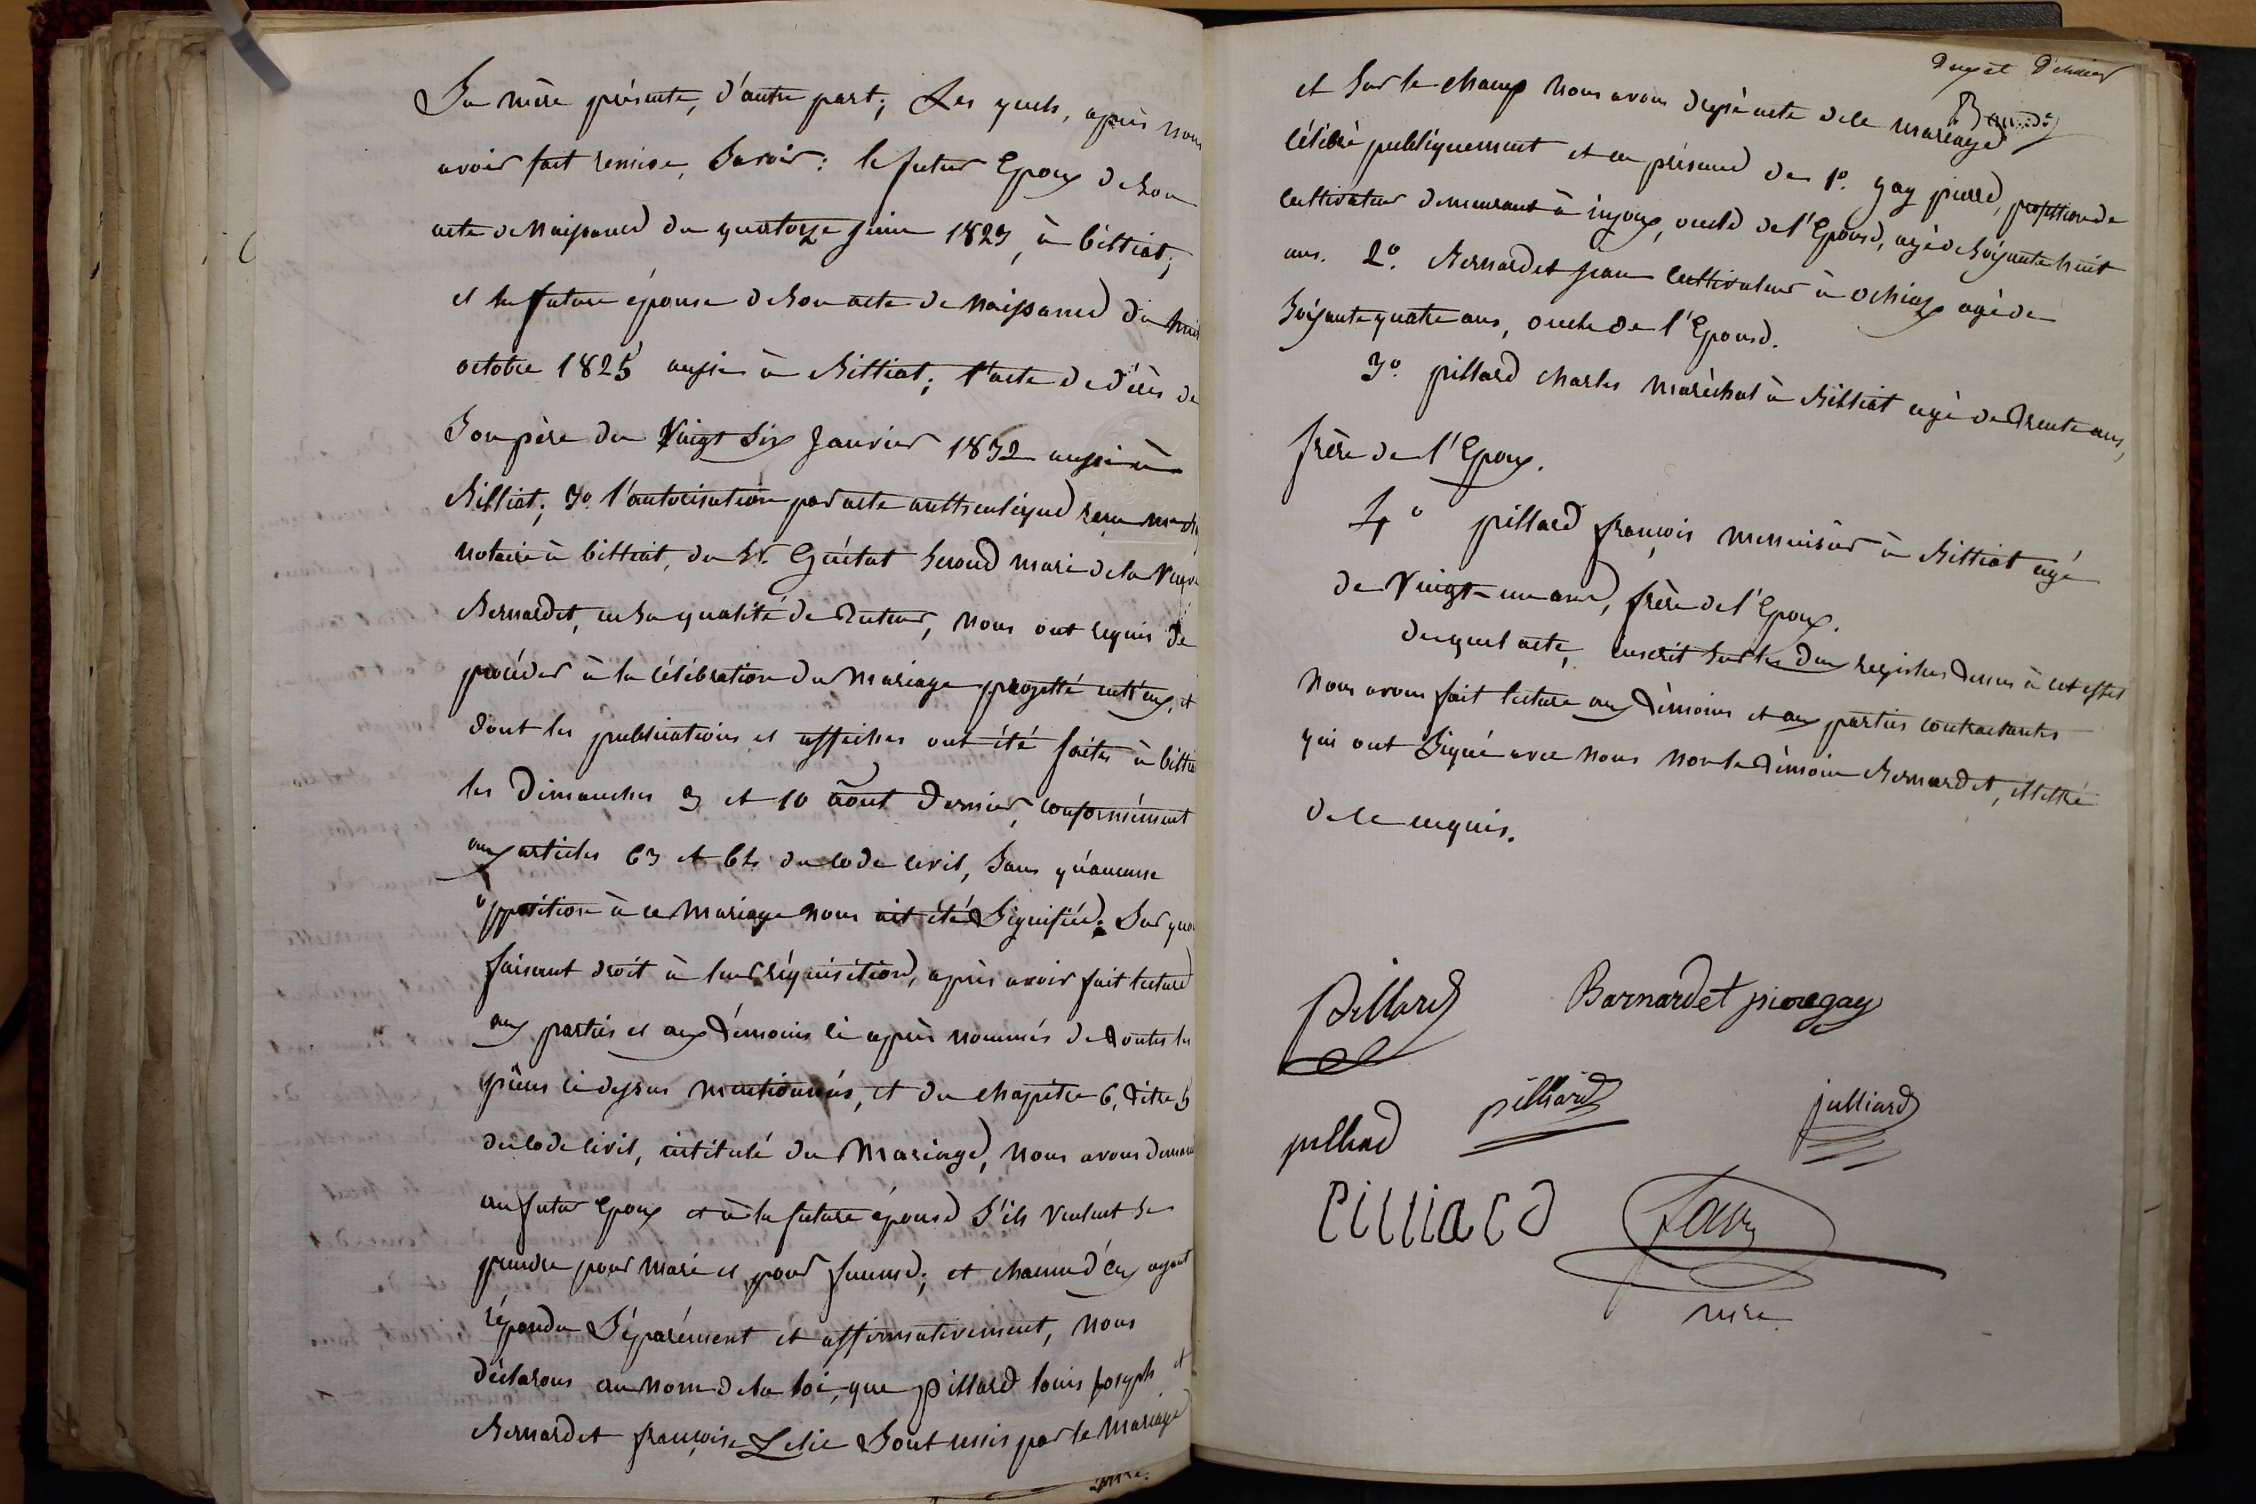 Sa mère présente, d'autre part; Les quels, après nous
avoir fait remise, Savoir: le futur Epoux de Son
acte de Naissance du quatorze juin 1823, à billiat;
et la future épouse de Son acte de Naissance du huit
octobre 1825 aussi à Billiat; l'acte de décès de
Son père du Vingt Six Janvier 1832 aussi à
Billiat; 3º l'autorisation par acte authentique reçu
notaire à billiat, du Sr. Guétat Second mari de la Veuve
Bernardet, en Sa qualité de Tuteur, Nous ont requis de
procéder à la célébration du Mariage projetté entr'eux, et
dont les publications et affiches ont été faites à billiat
les Dimanches 3 et 10 Août Dernier, conformément
aux articles 63 et 64 du code civil, Sans qu'aucune
opposition à ce Mariage Nous ait été Signifiée. Sur quoi
faisant droit à leur réquisition, après avoir fait lecture
aux parties et aux témoins ci après nommés de toutes les
pièces ci dessus mentionnés, et du chapitre 6, titre 5
du code civil, intitulé du Mariage, Nous avons demandé
au futur Epoux et à la future épouse S'ils Veulent Se
prendre pour Mari et pour femme; et chacun d'eux ayant
répondu Séparément et affirmativement, Nous
déclarons au Nom de la loi, que pillard louis Joseph et
Bernardet françoise Lelie Sont unis par le Mariage
et Sur le champ Nous avons dressé acte de ce mariage
célébré publiquement et en présence de 1º. gay pierre, propriétaire
cultivateur demeurant à injoux, oncle de l'Epouse, agé de Soixante huit
ans. 2º. Bernardet jean cultivateur à ochiaz agé de
Soixante quatre ans, oncle de l'Epouse.
3º. pillard charles Maréchal à Billiat agé de Trente ans,
frère de l'Epoux.
4º pillard françois menuisier à Billiat agé
de Vingt-un ans, frère de l'Epoux.
duquel acte, inscrit Sur les deux registres tenus à cet effet
Nous avons fait lecture aux témoins et aux parties contractantes
qui ont Signé avec Nous Non le témoin Bernardet, illettré
de ce enquis.
Pillard Barnardet piere gay
pilliard julliard
pilliard
Pilliard